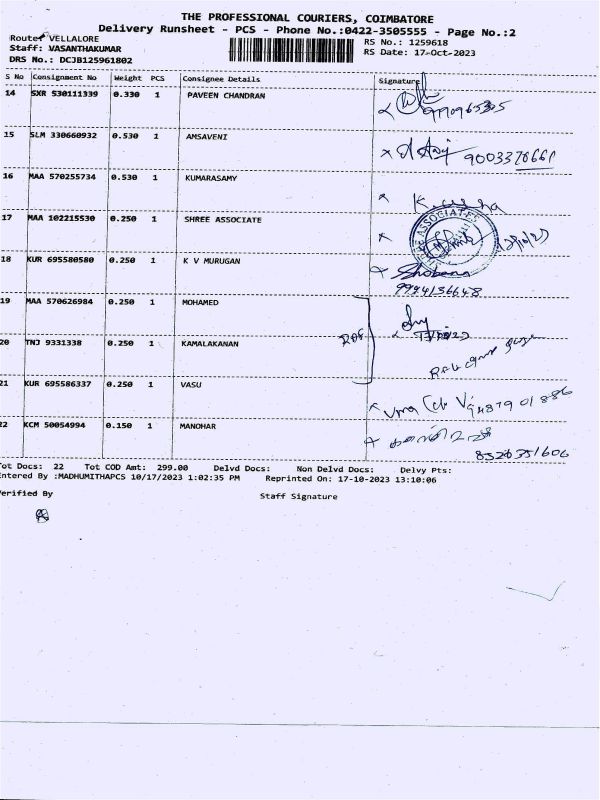 THE PROFESSIONAL COURIERS, COIMBATORE
Delivery Runsheet - PCS - Phone No.:0422-3505555 - Page No.:2
Route: VELLALORE
RS No.: 1259618
Staff: VASANTHAKUMAR
RS Date: 17-Oct-2023
DRS No.: DCJB125961802
S No Consignment No Weight PCS Consignee Details Signature
14 SXR 530111339 0.330 1 PAVEEN CHANDRAN
15 SLM 330660932 0.530 1 AMSAVENI
9003370661
16 MAA 570255734 0.530 1 KUMARASAMY
17 MAA 102215530 0.250 1 SHREE ASSOCIATE
18 KUR 695580580 0.250 1 K V MURUGAN Shobana
9994136648
19 MAA 570626984 0.250 1 MOHAMED
20 TNJ 9331338 0.250 1 KAMALAKANAN
21 KUR 695586337 0.250 1 VASU
22 KCM 50054994 0.150 1 MANOHAR
8526351606
Tot Docs: 22 Tot COD Amt: 299.00 Delvd Docs: Non Delvd Docs: Delvy Pts:
Entered By :MADHUMITHAPCS 10/17/2023 1:02:35 PM Reprinted On: 17-10-2023 13:10:06
Verified By Staff Signature